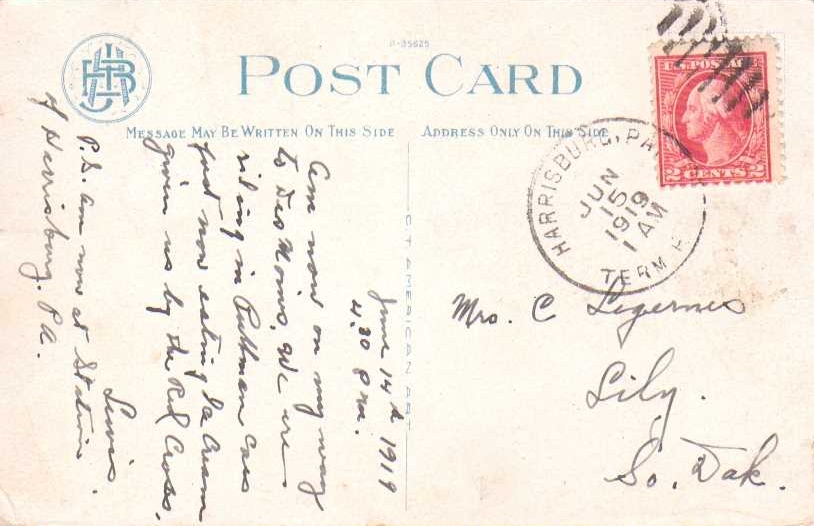 A-35625
POST CARD
MESSAGE MAY BE WRITTEN ON THIS SIDE
ADDRESS ONLY ON THIS SIDE
U.S. POSTAGE
2 CENTS 2
HARRISBURG, PA
JUN
15
1919
1 AM
TERM H
C.T. AMERICAN ART
June 14th 1919
4.30 Pm.
Am now on my way
to Des Moines, We are
riding in Pullman Cars
Just now eating Ice Cream
given us by the Red Cross,
Lewis.
P.S. am now at Station
of Harrisburg. Pa.
Mrs. C Legernes
Lily.
So. Dak.